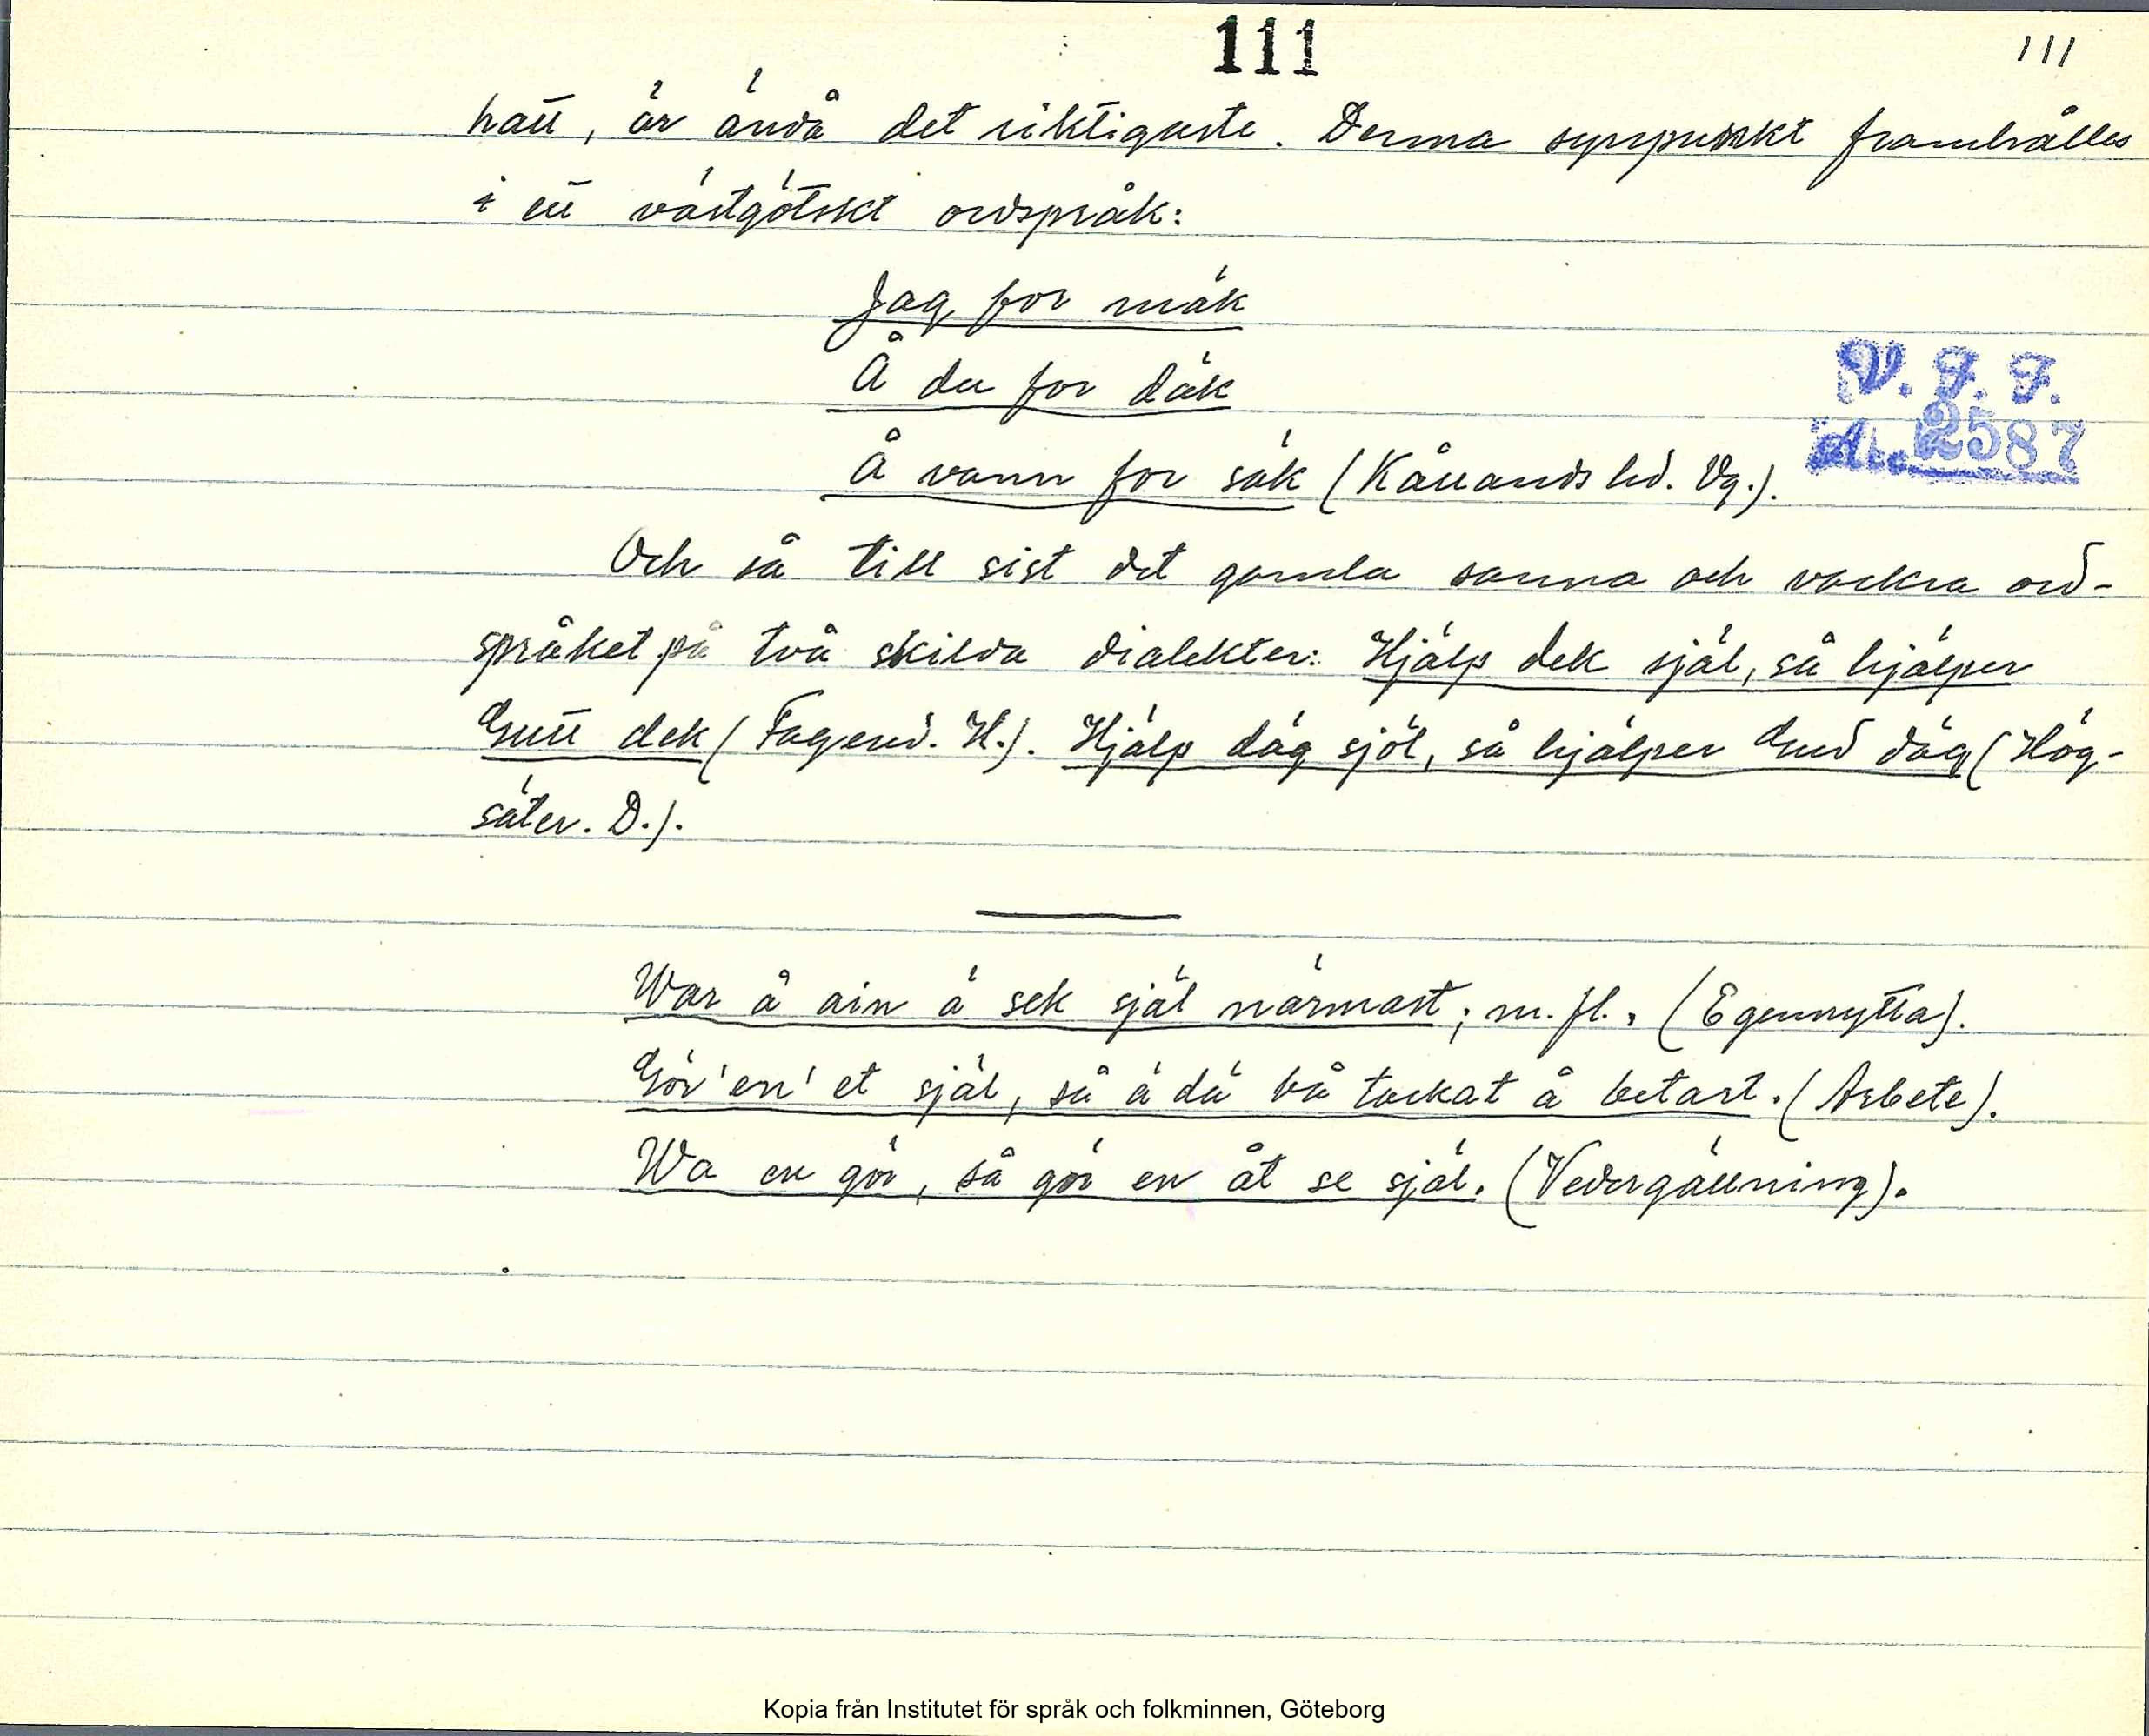 111
111
hätt, är ändå det riktigaste. Denna synpunkt framhålles
i ett västgötskt ordspråk:
Jag for mäk
Å du for däk
Å vann for säk (Kållands hd. Vg.).
V. F. F.
Acc. 2587
Och så till sist det gamla sanna och vackra ord-
språket på två skilda dialekter: Hjälp dek själ, så hjälper
Gutt dek (Fagered. H.). Hjälp däg sjöl, så hjälper Gud däg (Hög-
säter. D.).
War å ain ä sek själ närmast; m.fl., (Egennytta).
Gör'en' et själ, så ä dä bå tackat å betart. (Arbete).
Wa en gör, så gör en åt se själ. (Vedergällning).
Kopia från Institutet för språk och folkminnen, Göteborg